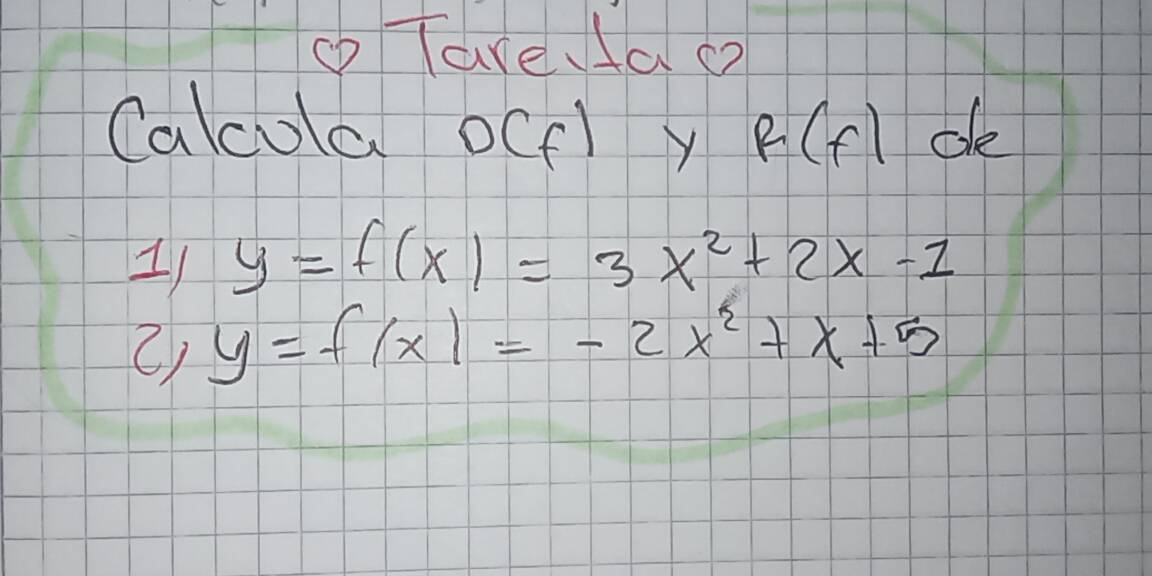 ♡ Tareita ♡
Calcula D(f) y R(f) de
1) y = f(x) = 3x² + 2x - 1
2) y = f(x) = - 2x² + x + 5